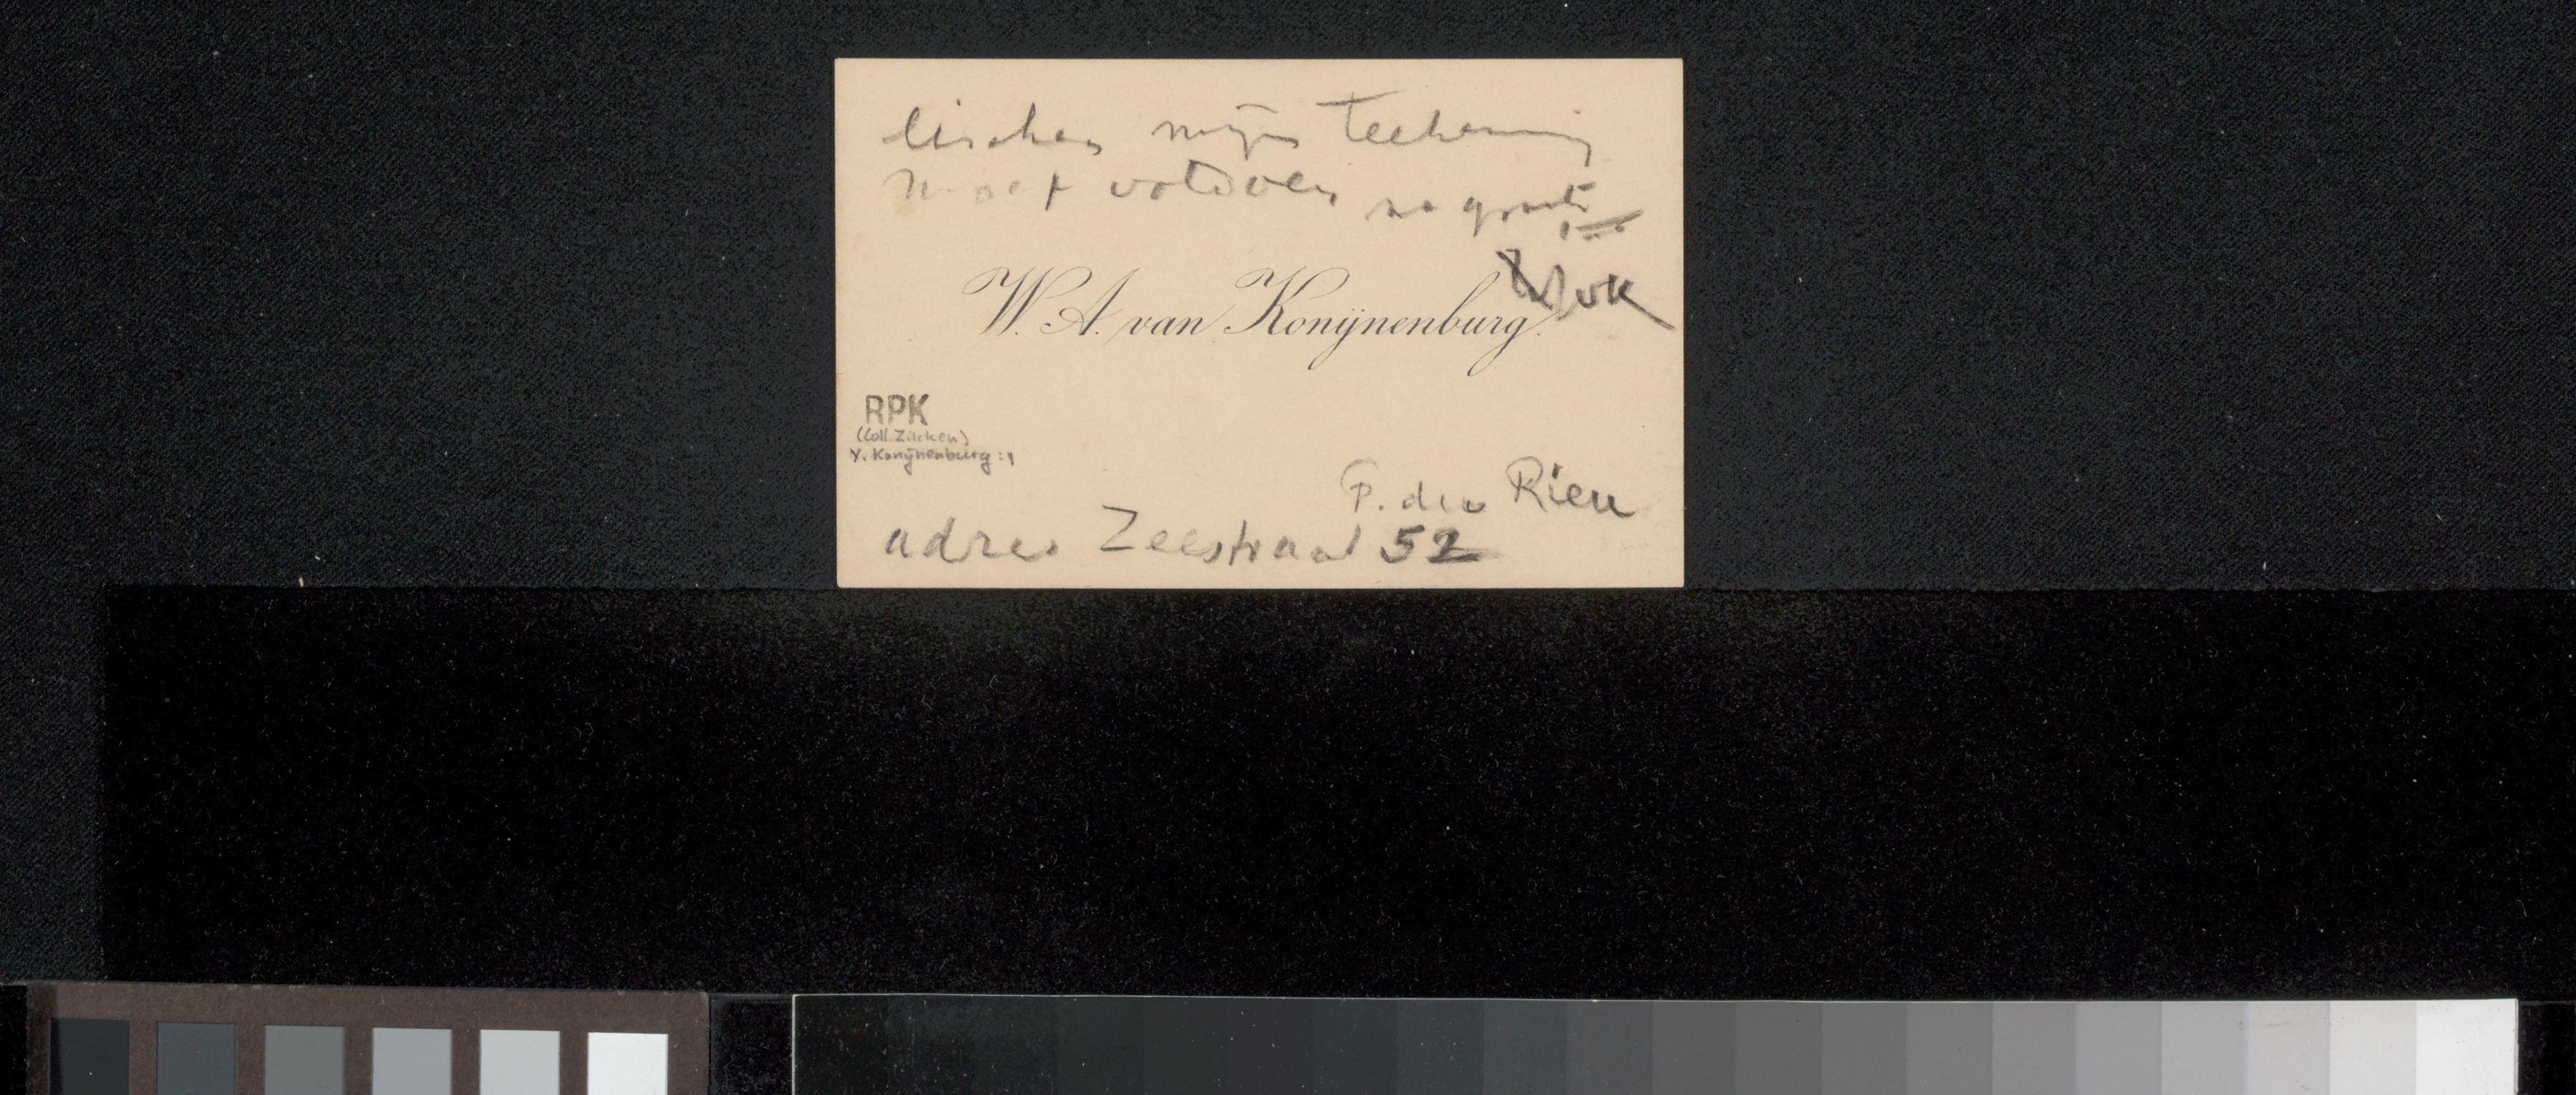 mijn Teekening
moet voldoen
WvK
W. A. van Konijnenburg.
RPK
(Coll. Zilcken)
v. Konijnenburg: 1
P. du Rieu
adres Zeestraat 52